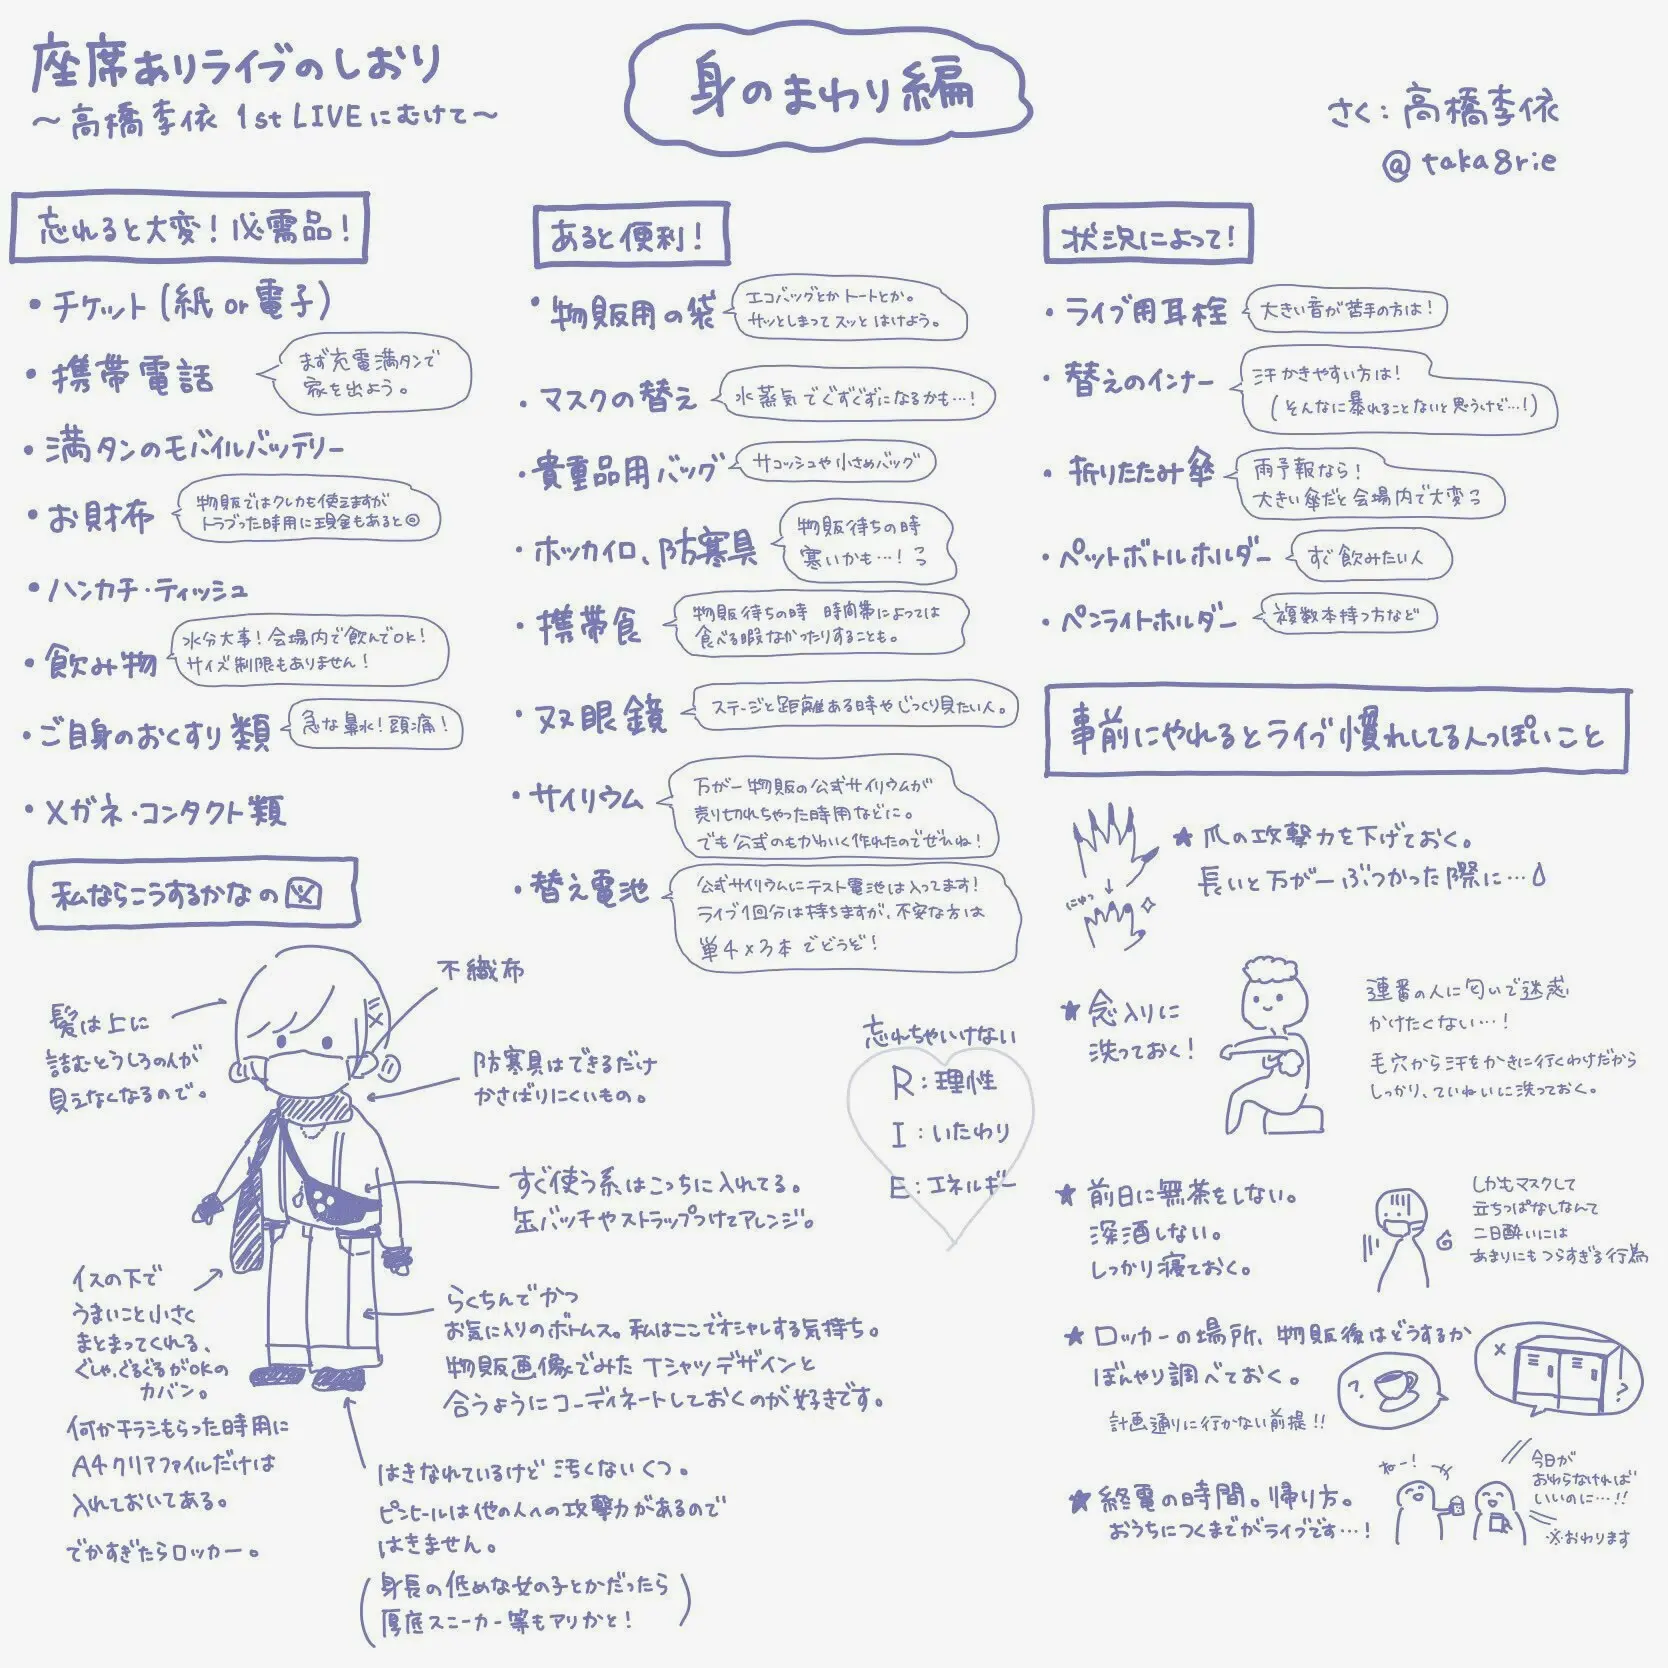 座席ありライブのしおり
～高橋李依 1st LIVEにむけて～
身のまわり編
さく:高橋李依
@taka8rie
忘れると大変!必需品!
・チケット(紙or電子)
・携帯電話
まず充電満タンで
家を出よう。
・満タンのモバイルバッテリー
・お財布
物販ではクレカも使えますが
トラブった時用に現金もあると◎
・ハンカチ・ティッシュ
・飲み物
水分大事!会場内で飲んでOK!
サイズ制限もありません!
・ご自身のおくすり類
急な鼻水!頭痛!
・メガネ・コンタクト類
あると便利!
・物販用の袋
エコバッグとかトートとか。
サッとしまってスッとはけよう。
・マスクの替え
水蒸気でぐずぐずになるかも…!
・貴重品用バッグ
サコッシュや小さめバッグ
・ホッカイロ、防寒具
物販待ちの時
寒いかも…!っ
・携帯食
物販待ちの時 時間帯によっては
食べる暇なかったりすることも。
・双眼鏡
ステージと距離ある時やじっくり見たい人。
・サイリウム
万が一物販の公式サイリウムが
売り切れちゃった時用などに。
でも公式のもかわいく作れたのでぜひね!
・替え電池
公式サイリウムにテスト電池は入ってます!
ライブ1回分は持ちますが、不安な方は
単4×3本でどうぞ!
状況によって!
・ライブ用耳栓
大きい音が苦手の方は!
・替えのインナー
汗かきやすい方は!
(そんなに暴れることないと思うけど…!)
・折りたたみ傘
雨予報なら!
大きい傘だと会場内で大変っ
・ペットボトルホルダー
すぐ飲みたい人
・ペンライトホルダー
複数本持つ方など
私ならこうするかなの図
不織布
髪は上に
詰むとうしろの人が
見えなくなるので。
防寒具はできるだけ
かさばりにくいもの。
すぐ使う系はこっちに入れてる。
缶バッチやストラップつけてアレンジ。
イスの下で
うまいこと小さく
まとまってくれる、
ぐしゃ、ぐるぐるがOKの
カバン。
何かチラシもらった時用に
A4クリアファイルだけは
入れておいてある。
でかすぎたらロッカー。
らくちんでかつ
お気に入りのボトムス。私はここでオシャレする気持ち。
物販画像でみたTシャツデザインと
合うようにコーディネートしておくのが好きです。
はきなれているけど汚くないくつ。
ピンヒールは他の人への攻撃力があるので
はきません。
(身長の低めな女の子とかだったら
厚底スニーカー等もアリかと!)
忘れちゃいけない
R:理性
I:いたわり
E:エネルギー
事前にやれるとライブ慣れしてる人っぽいこと
★爪の攻撃力を下げておく。
長いと万が一ぶつかった際に…
にゅっ
★念入りに
洗っておく!
連番の人に匂いで迷惑
かけたくない…!
毛穴から汗をかきに行くわけだから
しっかり、ていねいに洗っておく。
★前日に無茶をしない。
深酒しない。
しっかり寝ておく。
しかもマスクして
立ちっぱなしなんて
二日酔いには
あまりにもつらすぎる行為
★ロッカーの場所、物販後はどうするか
ぼんやり調べておく。
計画通りに行かない前提!!
?
×
?
★終電の時間。帰り方。
おうちにつくまでがライブです…!
ねー!
今日が
おわらなければ
いいのに…!!
※おわります